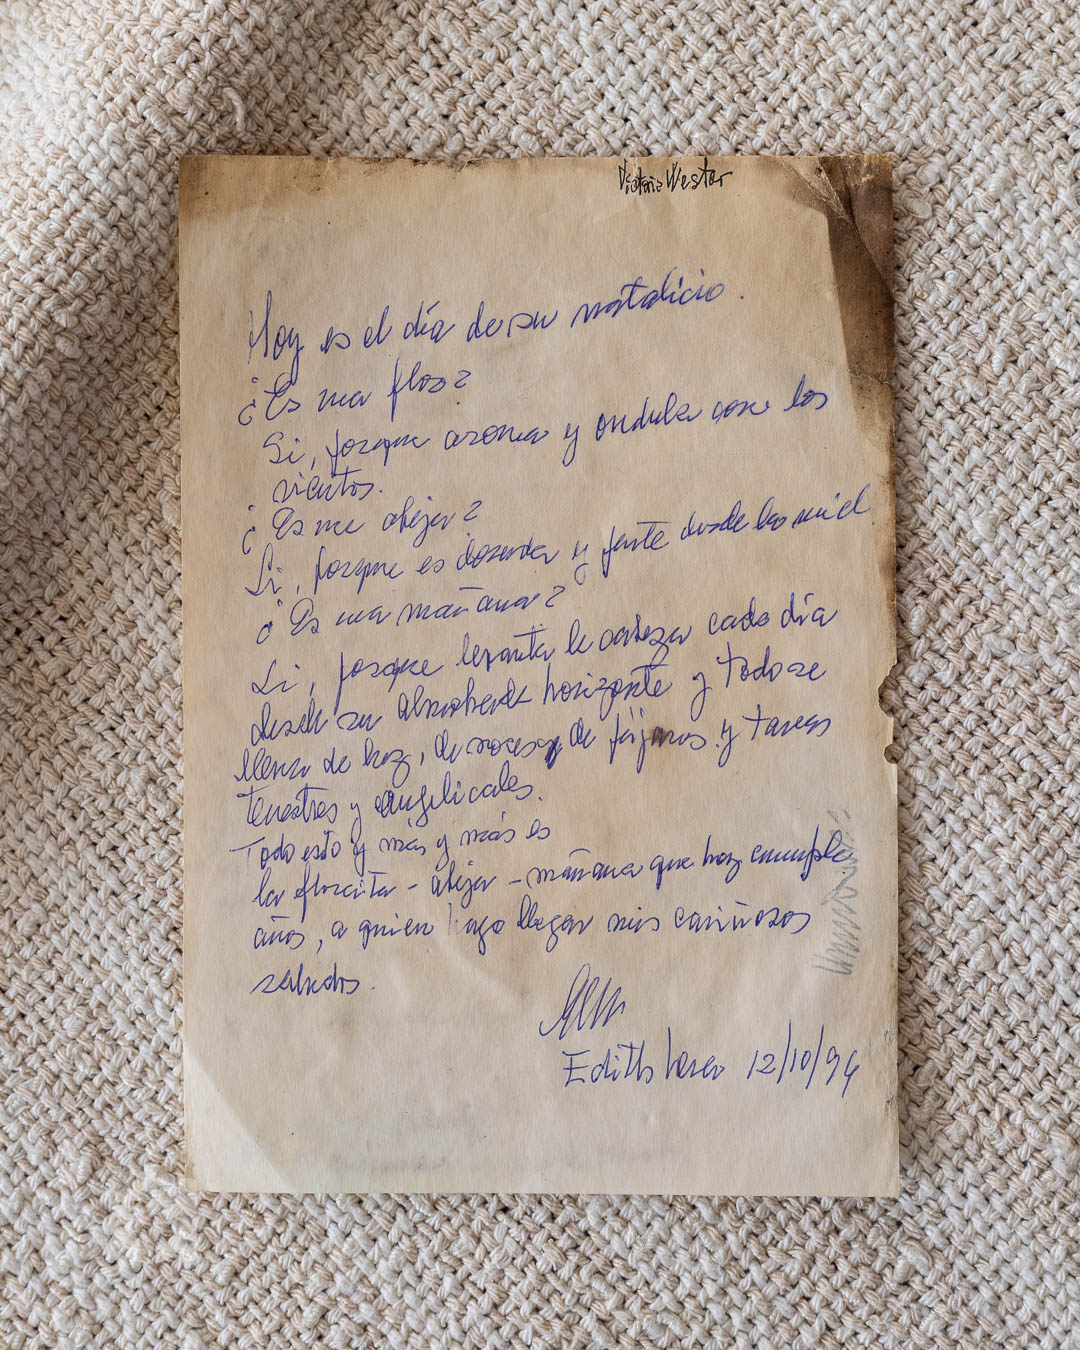 Victoria Wester
Hoy es el día de su natalicio.
¿Es una flor?
Si, porque aroma y ondula con los
vientos.
¿Es una abeja?
Si, porque es dorada y parte desde la miel.
¿Es una mañana?
Si, porque levanta la cabeza cada día
desde su almohada horizonte y todo se
llena de luz, de voces, de pájaros y tareas
terrestres y angelicales.
Todo esto y más y más es
la florcita - abeja - mañana que hoy cumple
años, a quien hago llegar mis cariñosos
saludos.
Edith 12/10/94